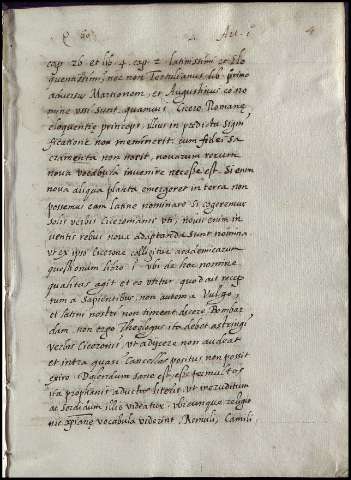 Q. 20 Art. 1 4
cap. 26. et lib. 4. cap. 2. latinissimi et elo
quentissimi, nec non Tertulianus lib. primo
adversus Marcionem, et Augustinus eo no
mine usi sunt, quamvis Cicero Romanę
eloquentię princeps, illius in prędicta signi
ficatione non meminerit, cum fidei sa
cramenta non norit, novarum rerum
nova vocabula invenire necesse est. Si enim
nova aliqua planta emergeret in terra non
possemus eam latine nominare si cogeremur
solis verbis Ciceronianis uti; novis enim in
ventis rebus nova adaptanda sunt nomina
ut ex ipso Cicerone colligitur academicarum
quęstionum libro 1. ubi de hoc nomine
qualitas agit et eo utitur, quod ait recep
tum a Sapientibus, non autem a Vulgo,
et latini nostri non timent dicere Bombar
dam, non ergo Theologus ita debet astringi
verbis Ciceronis, ut adijcere non audeat
et intra quasi Cancellos positus non possit
exire. Dolendum sane est, esse multos
ita prophanis adductos literis, ut ineruditum
ac sordidum illis videatur, ubicunque religio
nis vocabula viderint, Romuli, Camili,